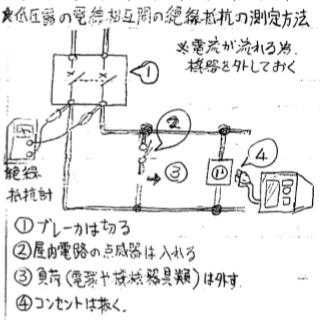 ★低圧電路の電線相互間の絶縁抵抗の測定方法
※電流が流れる為、
機器を外しておく
①
②
③
④
絶縁
抵抗計
①ブレーカは切る
②屋内電路の点滅器は入れる
③負荷(電球や機械器具類)は外す。
④コンセントは抜く。